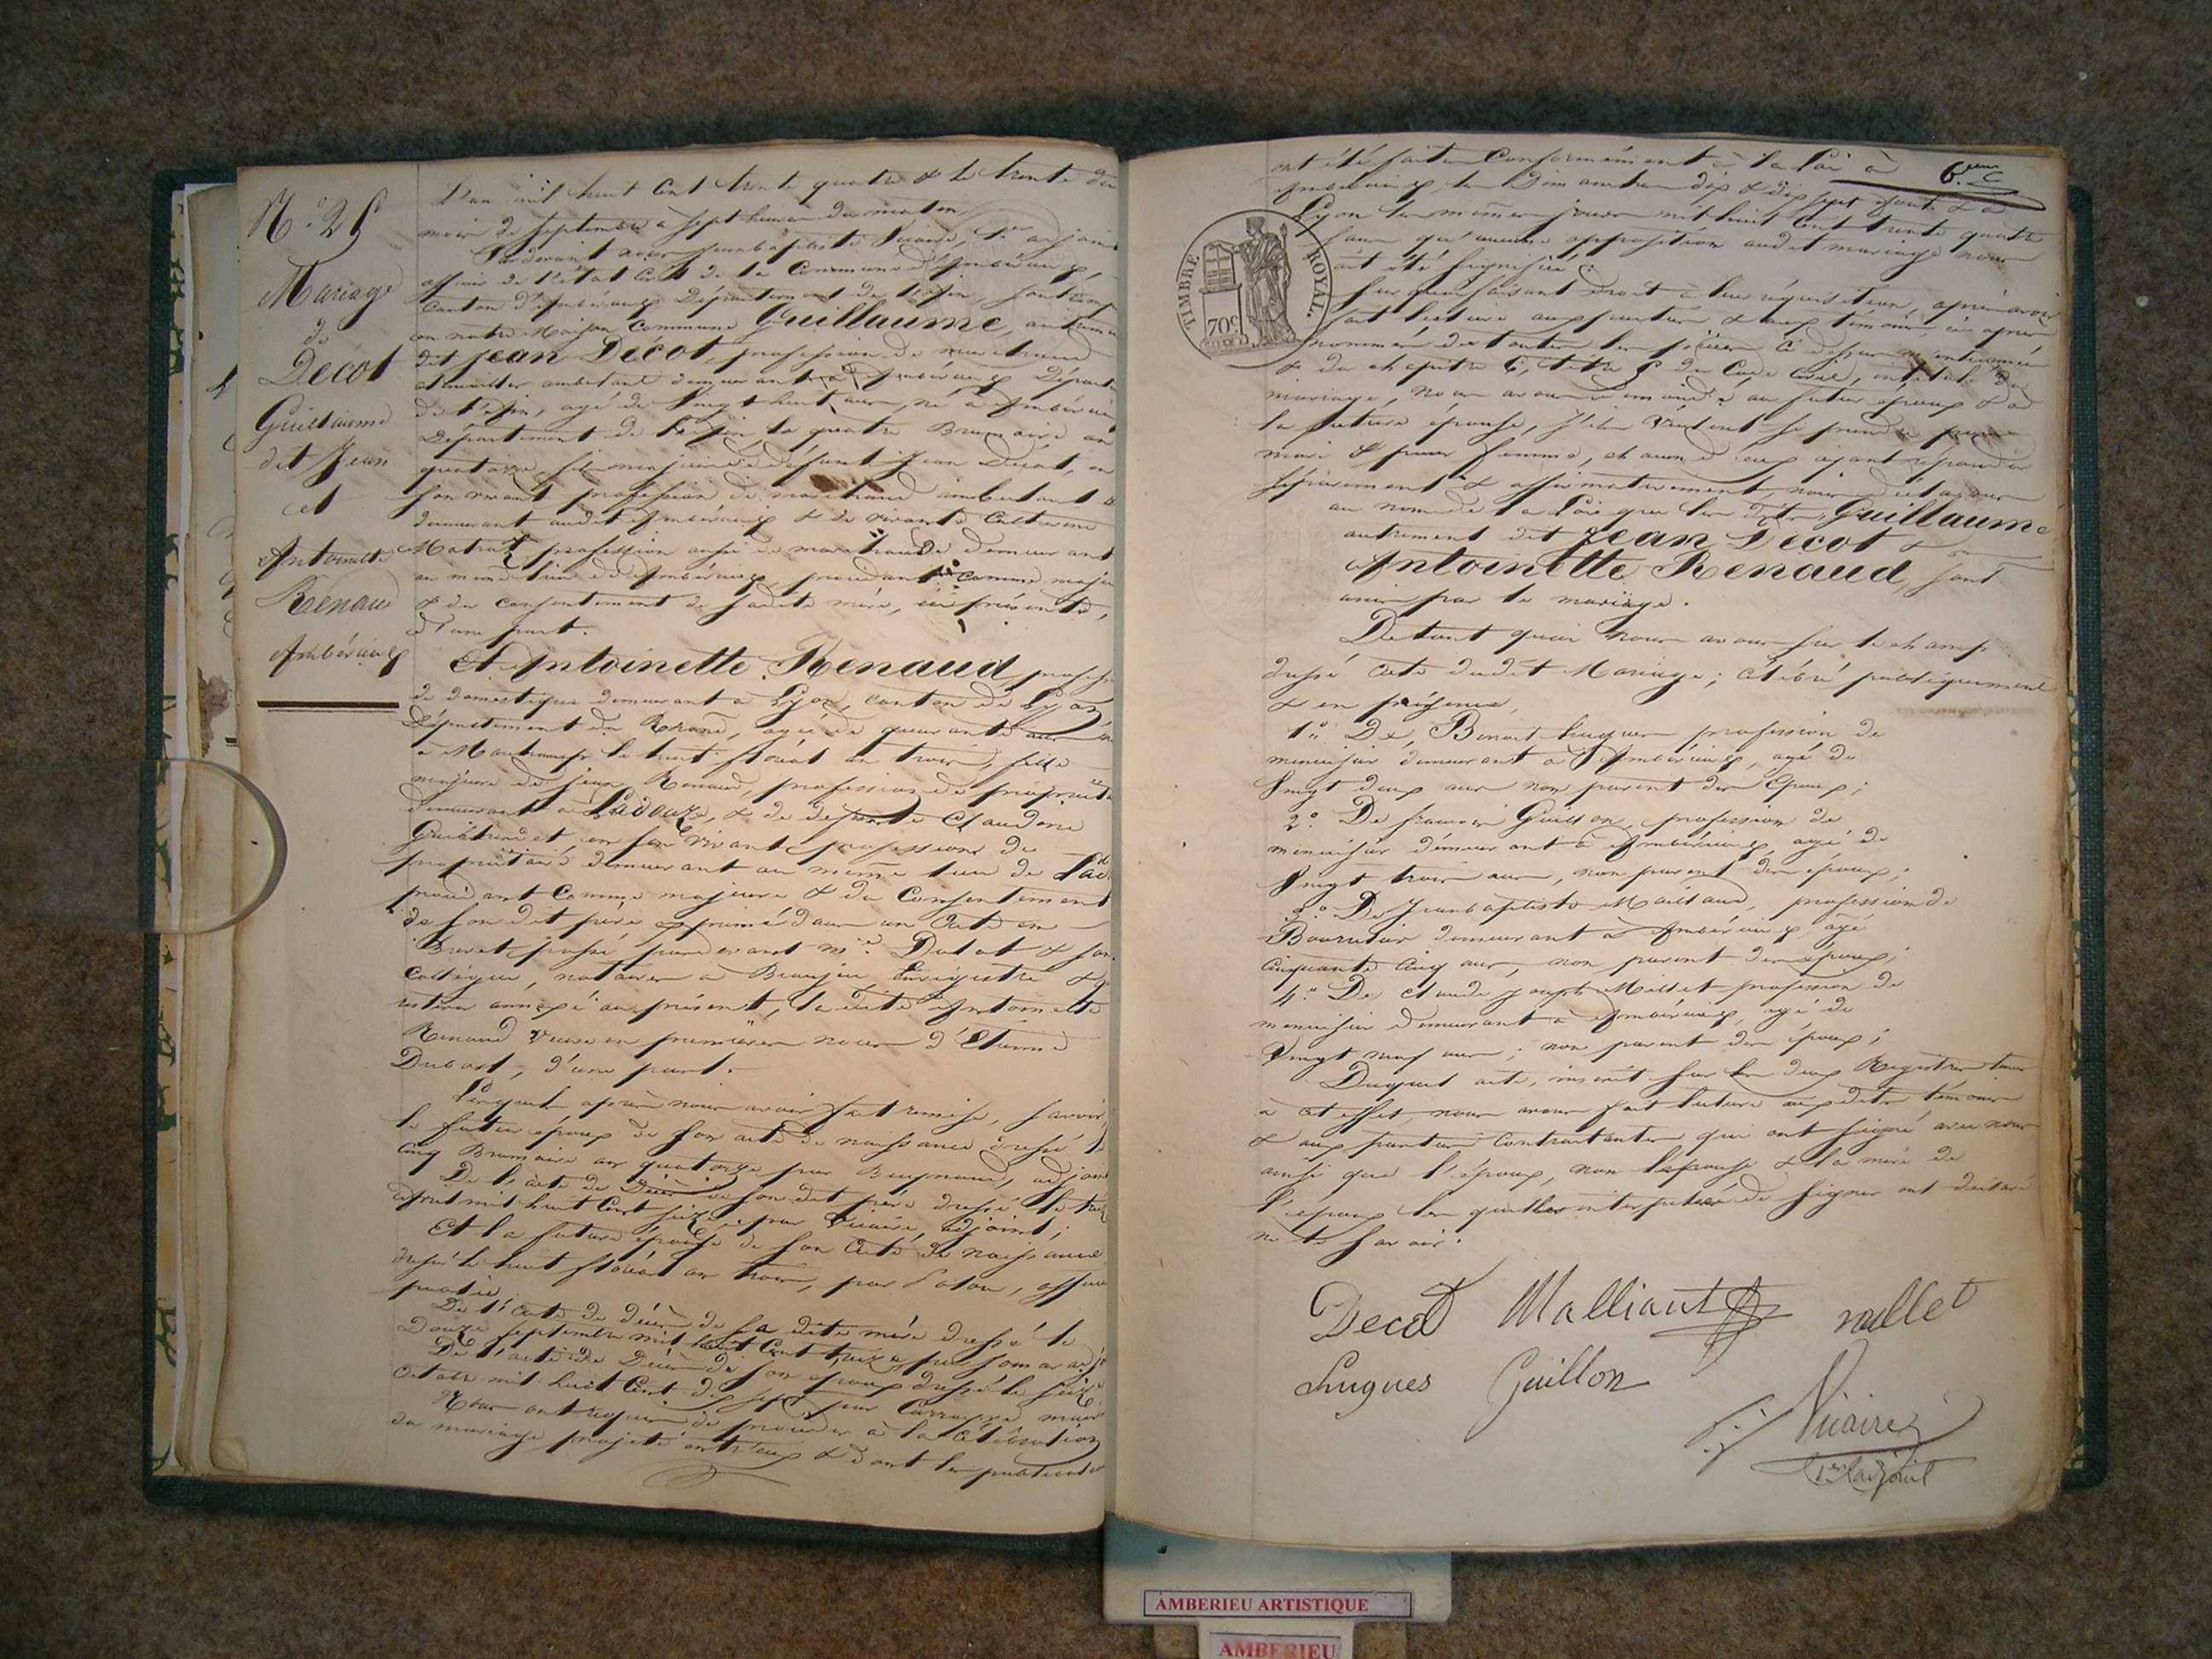 N.° 25
Mariage
de
Decot
Guillaume
dit Jean
et
Antoinette
Renaud
Ambérieux
L'an mil huit Cent trente quatre & le trente du
mois de Septembre à Sept heures du matin
Pardevant nous Jeanbaptiste Vicaire, 1er adjoint
officier de l'état Civil de la Commune d'Ambérieux,
Canton d'Ambérieux Département de l'Ain,
en notre Maison Commune Guillaume, autrement
dit Jean Décot, profession de marchand
ambulant demeurant à Ambérieux Départ
de l'Ain, agé de Vingt huit ans, né à Ambérieux
Département de l'Ain le quatre Brumaire an
quatorze, fils majeur de défunt Jean Decot, en
son vivant profession de marchand ambulant
demeurant audit Ambérieux & de vivante
Matras profession aussi de marchande demeurant
au même lieu d'Ambérieux, procédant comme majeur
& du consentement de sadite mère, ici présente,
d'une part.
Et Antoinette Renaud, profess
de domestique demeurant à Lyon, canton de Lyon
Département du Rhône, agée de quarante ans
à le huit floréal an trois, fille
majeure de Jean Renaud, profession de propriétaire
demeurant à & de defunte Claudine
en son vivant profession de
propriétaire demeurant au même lieu de
procédant Comme majeure & du Consentement
de son dit père exprimé dans un acte en
Brevet passé pardevant me. Dulat & son
collègue, notaires à Beaujeu, Enrégistré &
restera annexé au présent, la dite Antoinette
Renaud Veuve en premières noces d'Etienne
Dubost, d'une part.
Lesquels après nous avoir fait remise, savoir,
le futur epoux de son acte de naissance dressé le
Cinq Brumaire an quatorze par adjoint
De l'acte de Décès de son dit père dressé le
avril mil huit Cent seize par Vicaire, adjoint;
Et la future épouse de son Acte de naissance
dressé le huit floréal an trois, par officier
public
De l'acte de décès de sa dite mère dressé le
Douze Septembre mil huit Cent treize par
De l'acte de Décès de son epoux dressé le seize
Octobre mil huit Cent dix sept par maire
Nous ont requis de procéder à la célébration
du mariage projeté entr'eux & dont les publications
6.eme
ont été faites Conformément à la loi à
Ambérieux, les Dimanches dix & dix sept aout & à
Lyon les mêmes jours mil huit Cent trente quatre
sans qu'aucune opposition audit mariage nous
ait été signifiée.
TIMBRE ROYAL.
70c
Sur quoi faisant droit à leur réquisition, après avoir
fait lecture aux parties & aux témoins ci après
nommés de toutes les pièces ci dessus mentionnées
& du chapitre 6, titre 5 du Code Civil, intitulé du
mariage, Nous avons demandé au futur epoux & à
la future épouse, s'ils veulent se prendre pour
mari & pour femme, chacun d'eux ayant répondu
séparément & affirmativement, nous déclarons
au nom de la Loi que les dits Guillaume
autrement dit Jean Decot &
Antoinette Renaud, sont
unis par le mariage.
De tout quoi nous avons sur le champ
dressé acte dudit Mariage; célébré publiquement
& en présence,
1.° De, Benoit hugues profession de
menuisier demeurant à Ambérieux, agé de
Vingt deux ans non parent des Epoux;
2.° De francois Guillon, profession de
menuisier demeurant à Ambérieux, agé de
Vingt trois ans, non parent des époux;
3.° De Jeanbaptiste Malliand, profession de
Bourrelier demeurant à Ambérieux, agé
cinquante Cinq ans, non parent des époux;
4.° De Claude joseph Millet profession de
menuisier demeurant à Ambérieux, agé de
Vingt neuf ans; non parent des époux;
Duquel acte, inscrit sur les deux Registres tenus
à cet effet, nous avons fait lecture auxdits témoins
& aux parties Contractantes qui ont signé avec nous
ainsi que l'époux, non l'épouse & la mère de
l'epoux les quelles interpellées de signer ont déclaré
ne le savoir.
Decot Malliant millet
hugues Guillon
Vicaire
1er adjoint
AMBERIEU ARTISTIQUE
AMBERIEU